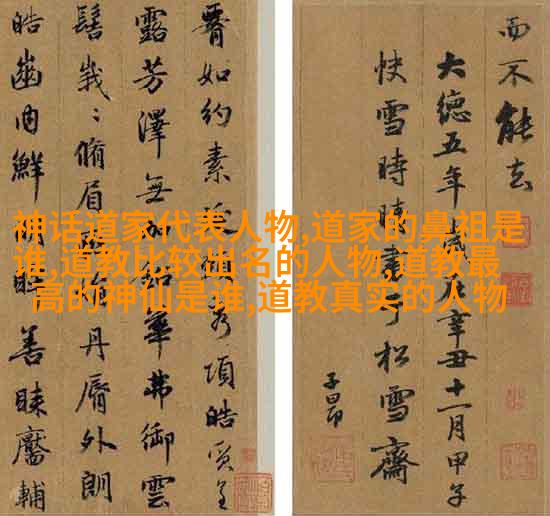 神话道家代表人物,道家的鼻祖是
谁,道教比较出名的人物,道教最
高的神仙是谁,道教真实的人物
如約素延秀項皓質呈
露芳澤無加鉛華弗御雲
髻峩〻脩眉聯娟丹脣外朗
皓齒內鮮明眸善睞靨輔
而不能去
大德五年歲辛丑十一月甲子
快雪時晴書于松雪齋
子昂